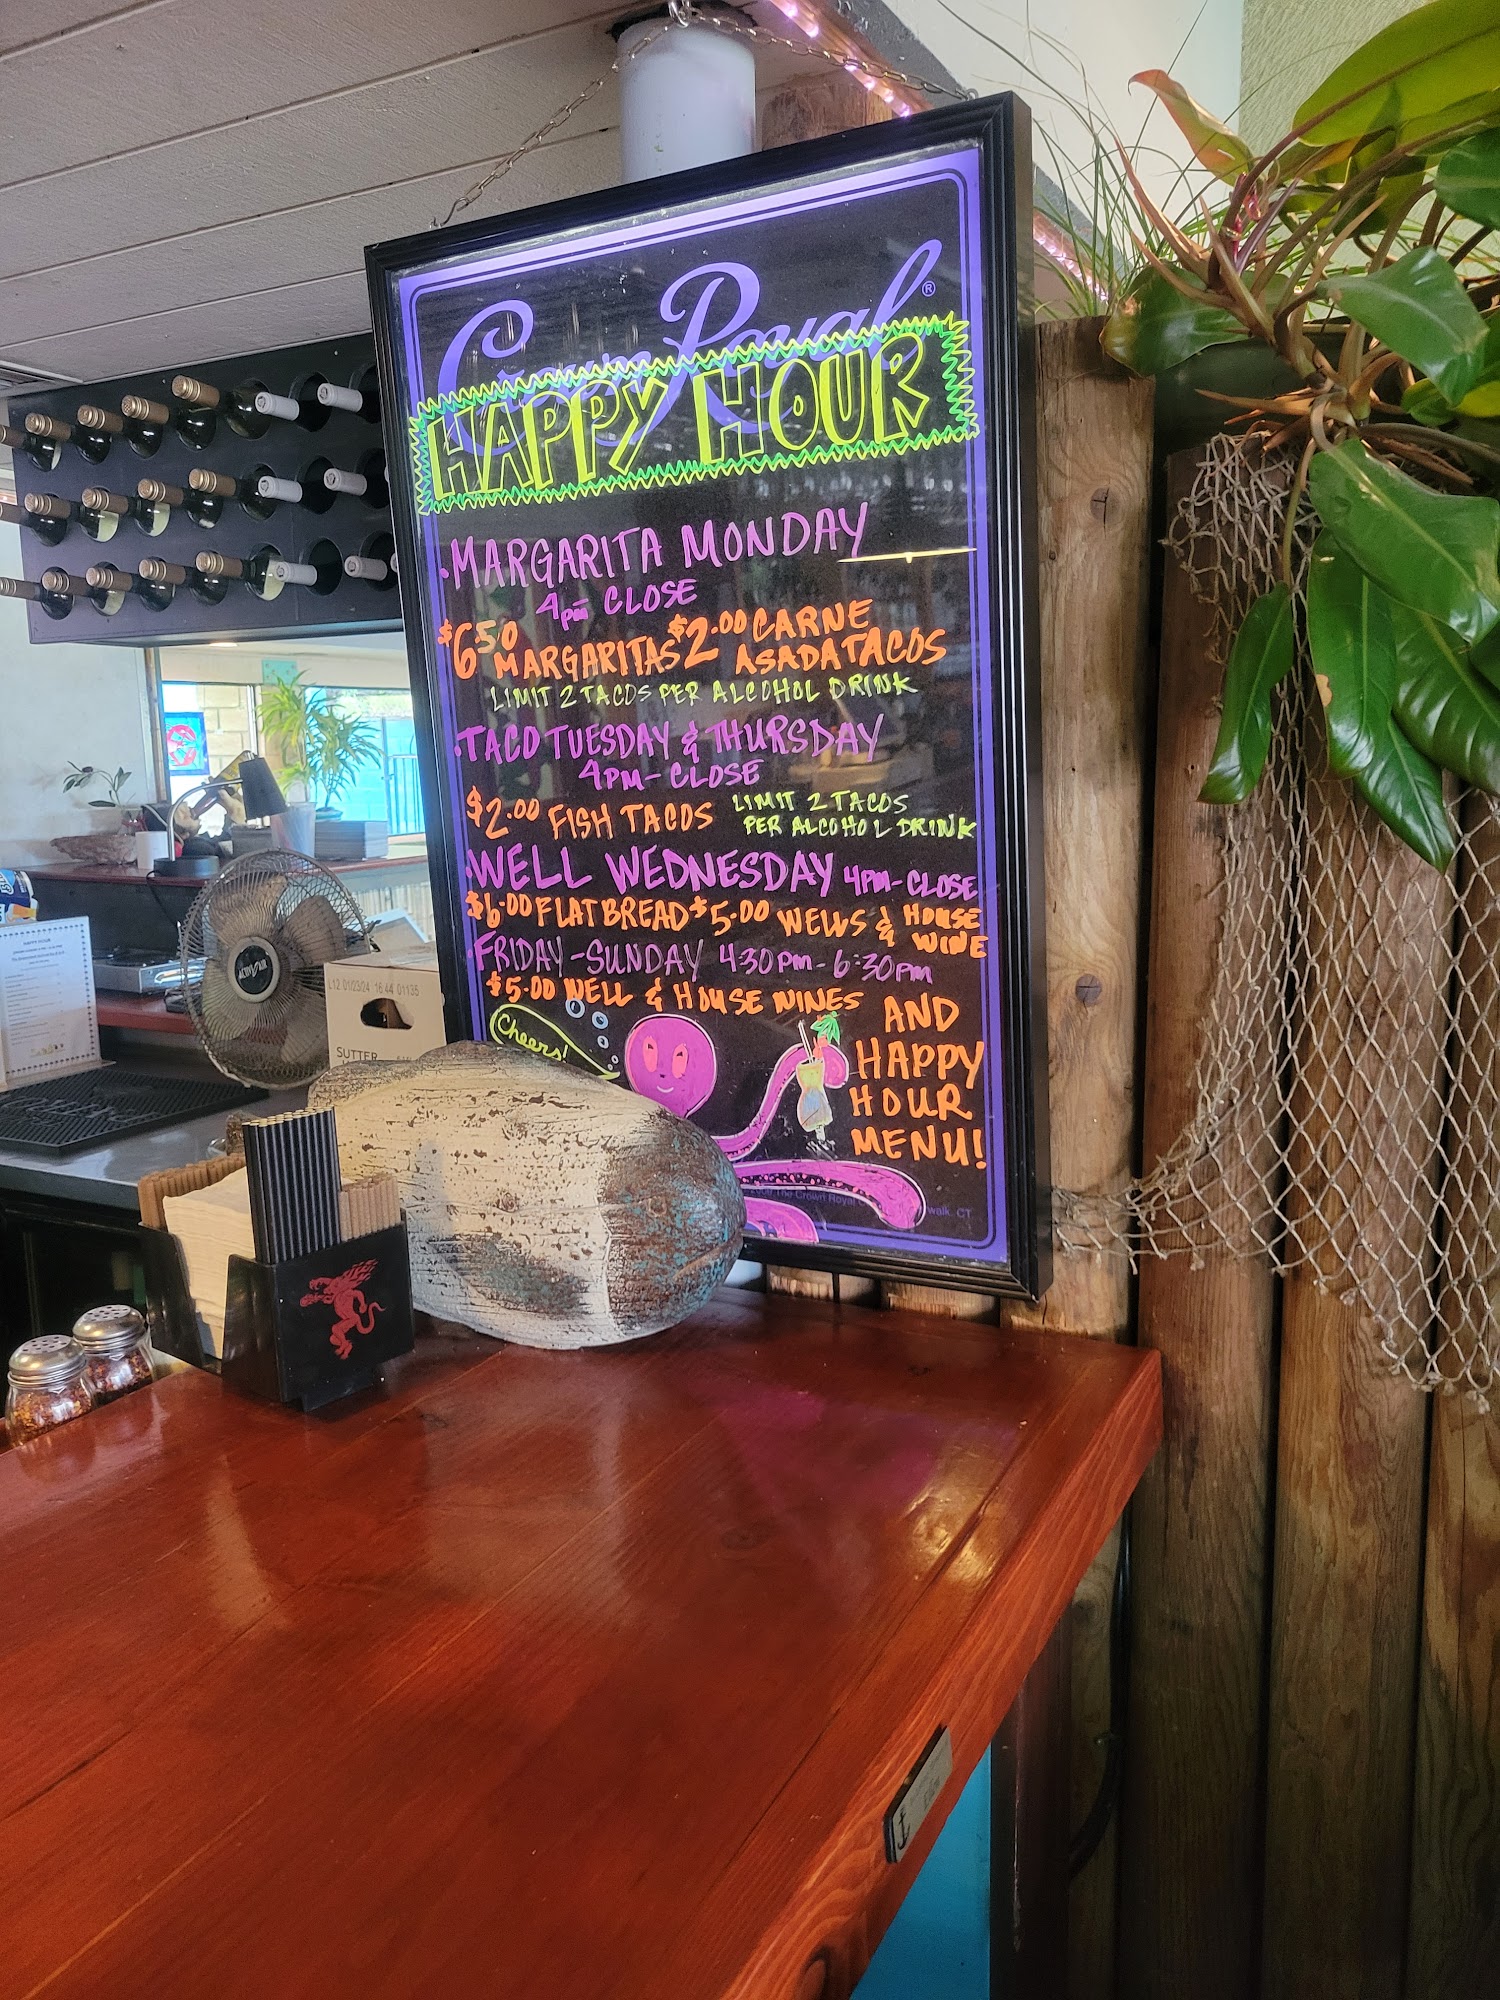 Crown Royal®
HAPPY HOUR
·MARGARITA MONDAY
4pm CLOSE
$6.50 MARGARITAS $2.00 CARNE ASADA TACOS
LIMIT 2 TACOS PER ALCOHOL DRINK
·TACO TUESDAY & THURSDAY
4PM-CLOSE
$2.00 FISH TACOS LIMIT 2 TACOS
PER ALCOHOL DRINK
·WELL WEDNESDAY 4PM-CLOSE
$6.00 FLATBREAD $5.00 WELLS & HOUSE WINE
·FRIDAY-SUNDAY 430pm-6:30pm
$5.00 WELL & HOUSE WINES
AND
HAPPY
HOUR
MENU!
Cheers!
The Crown Royal
walk, CT
L12 01/23/24 16:44 01135
SUTTER
HAPPY HOUR